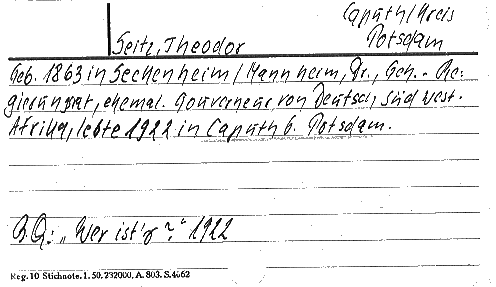 Caputh/Kreis
Potsdam
Seitz, Theodor
Geb. 1863 in Seckenheim/Mannheim, Dr., Geh.-Re-
gierungsrat, ehemal. Gouverneur von Deutsch, Süd west-
Afrika, lebte 1922 in Caputh b. Potsdam.
B.Q.: „Wer ist's?" 1922
Reg. 10 Stichnote. 1. 50. 232000. A. 803. S. 4662